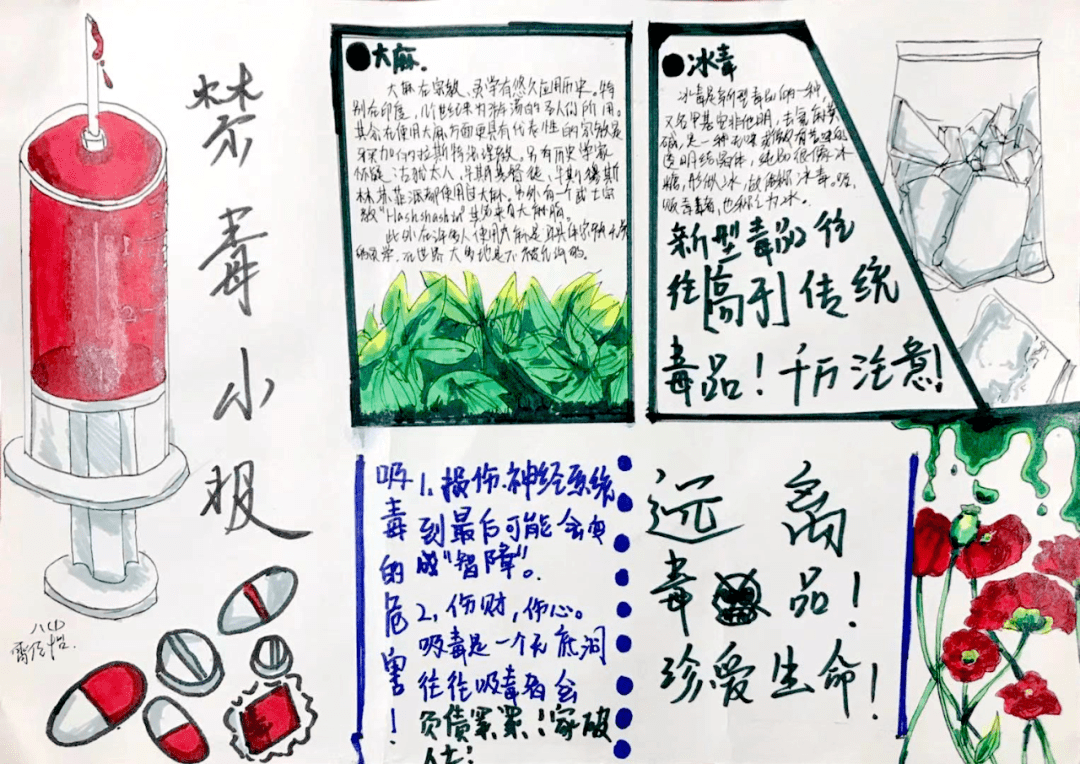 禁毒小报
八(1)
●大麻.
大麻在宗教、医学有悠久应用历史。特
别在印度，
其会在使用大麻方面更具有代表性的宗教是
牙买加的拉斯特法里教。另有历史学家
怀疑，古犹太人、早期基督徒、早期穆斯
林苏菲派都使用过大麻。另外有一个武士宗
教"Hashshashin"
此外在许多人使用大麻是
●冰毒
冰毒是新型毒品的一种
又名甲基安非他明，去氧麻黄
碱，是一种无味或微有苦味的
透明结晶体，纯品很像冰
糖，形似冰，故俗称冰毒。
吸毒者，也称之为冰。
新型毒品往
往[高于]传统
毒品！千万注意!
吸毒的危害！
1、损伤、神经系统
到最后可能会变
成"智障"。
2，伤财，伤心。
吸毒是一个无底洞
往往吸毒者会
负债累累！家破
人亡！
远离
毒品！
珍爱生命！